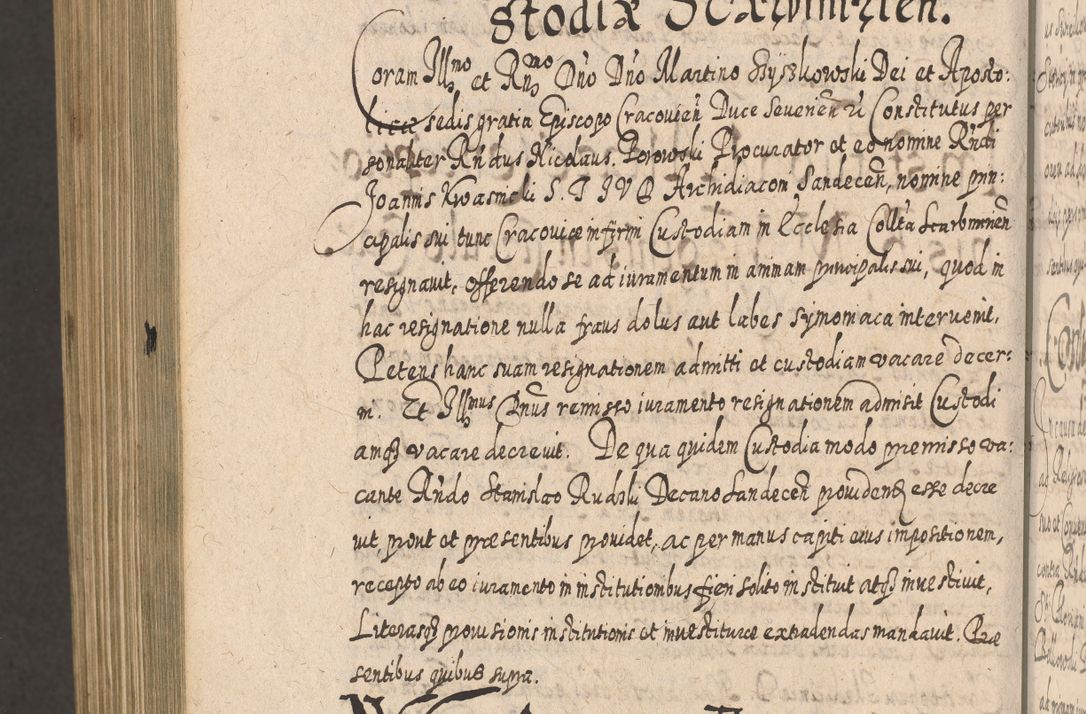 stodiæ Scarbimirien.
Coram Illmo et Rndmo Dno Dno Martino Szyszkowski Dei et Aposto:
licæ sedis gratia Episcopo Cracovien Duce Severien &c Constitutus per
sonaliter Rndus Nicolaus Porowski Procurator et eo nomine Rndi
Joannis Kwasnicki S. T. I V D Archidiaconi Sandecen, nomine prin:
cipalis sui tunc Cracoviæ infirmi Custodiam in Ecclesia Collta Scarbimirien
resignavit, offerendo se ad iuramentum in animam principalis sui, quod in
hac resignatione nulla fraus dolus aut labes symoniaca intervenit,
Petens hanc suam resignationem admitti et custodiam vacare decer:
ni. Et Illmus Dnus remisso iuramento resignationem admisit Custodi
amq vacare decrevit. De qua quidem Custodia modo premisso va:
cante Rndo Stanislao Rudzki Decano Sandecen providend esse decre
vit, prout et præsentibus providet, ac per manus capiti eius impositionem,
recepto ab eo iuramento in institutionibus fieri solito instituit atq investivit,
Literasq provisionis institutionis et investituræ extradendas mandavit. Præ
sentibus quibus supra.